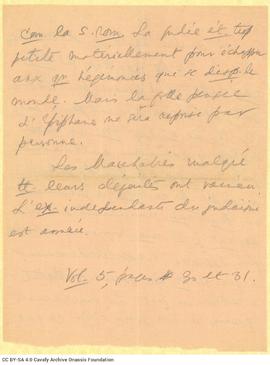 Com. la S. rom. La Judée et trop
petite matériellement pour échapper
aux gr hégémonies que se disp. le
monde. Mais la folle pensée
d'Épiphane ne sera reprise par
personne.
Les Macchabées malgré
tt leurs défauts ont vaincu.
L'ex. indépendante du judaïsme
est assurée.
Vol. 5, pages 30 et 31.
CC BY-SA 4.0 Cavafy Archive Onassis Foundation